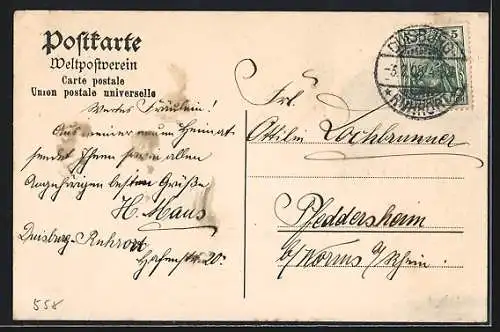 Postkarte
Weltpostverein
Carte postale
Union postale universelle
Wertes Fräulein!
Aus meiner neuen Heimat
sendet Ihnen sowie allen
Angehörigen besten Grüße
H. Maus
Duisburg-Ruhrort
Hafenstr. 20.
558
DUISBURG
RUHRORT
5
Frl.
Ottilie Lochbrunner
Pfeddersheim
b/Worms a/Rhein.